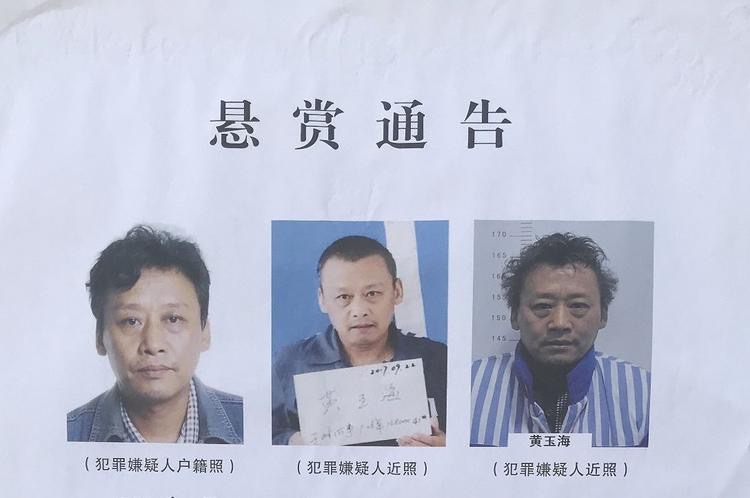 悬赏通告
170
165
155
150
145
2017.09.22
黄玉海
黄玉海
(犯罪嫌疑人户籍照)
(犯罪嫌疑人近照)
(犯罪嫌疑人近照)